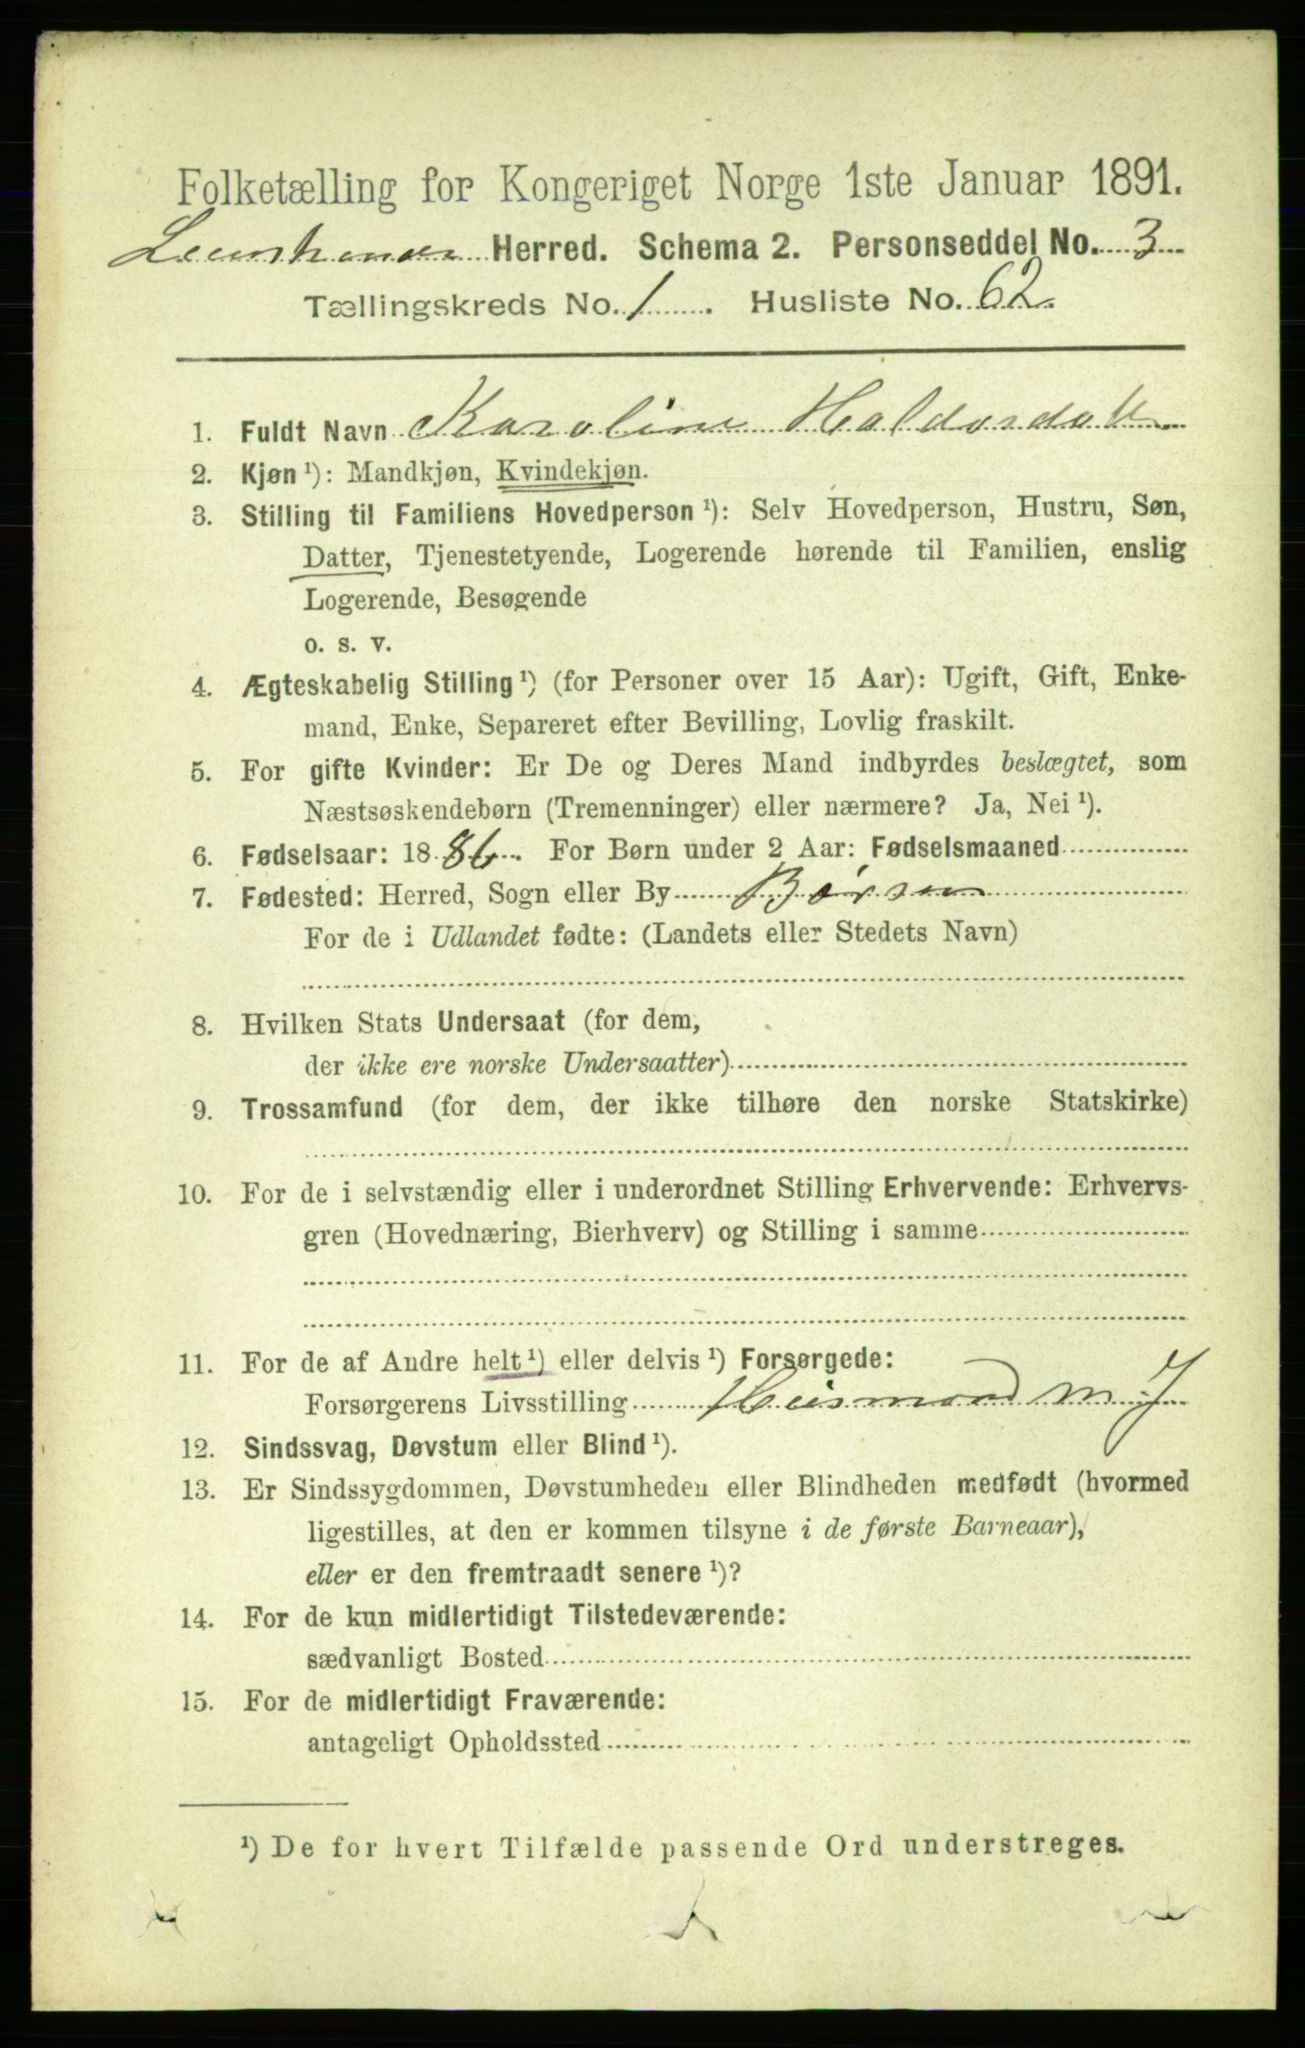 Folketælling for Kongeriget Norge 1ste Januar 1891.
Leinstranden Herred. Schema 2. Personseddel No. 3
Tællingskreds No. 1. Husliste No. 62.
1. Fuldt Navn Karoline Haldorsdatt
2. Kjøn ¹): Mandkjøn, Kvindekjøn.
3. Stilling til Familiens Hovedperson ¹): Selv Hovedperson, Hustru, Søn,
Datter, Tjenestetyende, Logerende hørende til Familien, enslig
Logerende, Besøgende
o. s. v.
4. Ægteskabelig Stilling ¹) (for Personer over 15 Aar): Ugift, Gift, Enke-
mand, Enke, Separeret efter Bevilling, Lovlig fraskilt.
5. For gifte Kvinder: Er De og Deres Mand indbyrdes beslægtet, som
Næstsøskendebørn (Tremenninger) eller nærmere? Ja, Nei ¹).
6. Fødselsaar: 1886. For Børn under 2 Aar: Fødselsmaaned
7. Fødested: Herred, Sogn eller By Børsen
For de i Udlandet fødte: (Landets eller Stedets Navn)
8. Hvilken Stats Undersaat (for dem,
der ikke ere norske Undersaatter)
9. Trossamfund (for dem, der ikke tilhøre den norske Statskirke)
10. For de i selvstændig eller i underordnet Stilling Erhvervende: Erhvervs-
gren (Hovednæring, Bierhverv) og Stilling i samme
11. For de af Andre helt ¹) eller delvis ¹) Forsørgede:
Forsørgerens Livsstilling Husmand m J
12. Sindssvag, Døvstum eller Blind ¹).
13. Er Sindssygdommen, Døvstumheden eller Blindheden medfødt (hvormed
ligestilles, at den er kommen tilsyne i de første Barneaar),
eller er den fremtraadt senere ¹)?
14. For de kun midlertidigt Tilstedeværende:
sædvanligt Bosted
15. For de midlertidigt Fraværende:
antageligt Opholdssted
¹) De for hvert Tilfælde passende Ord understreges.